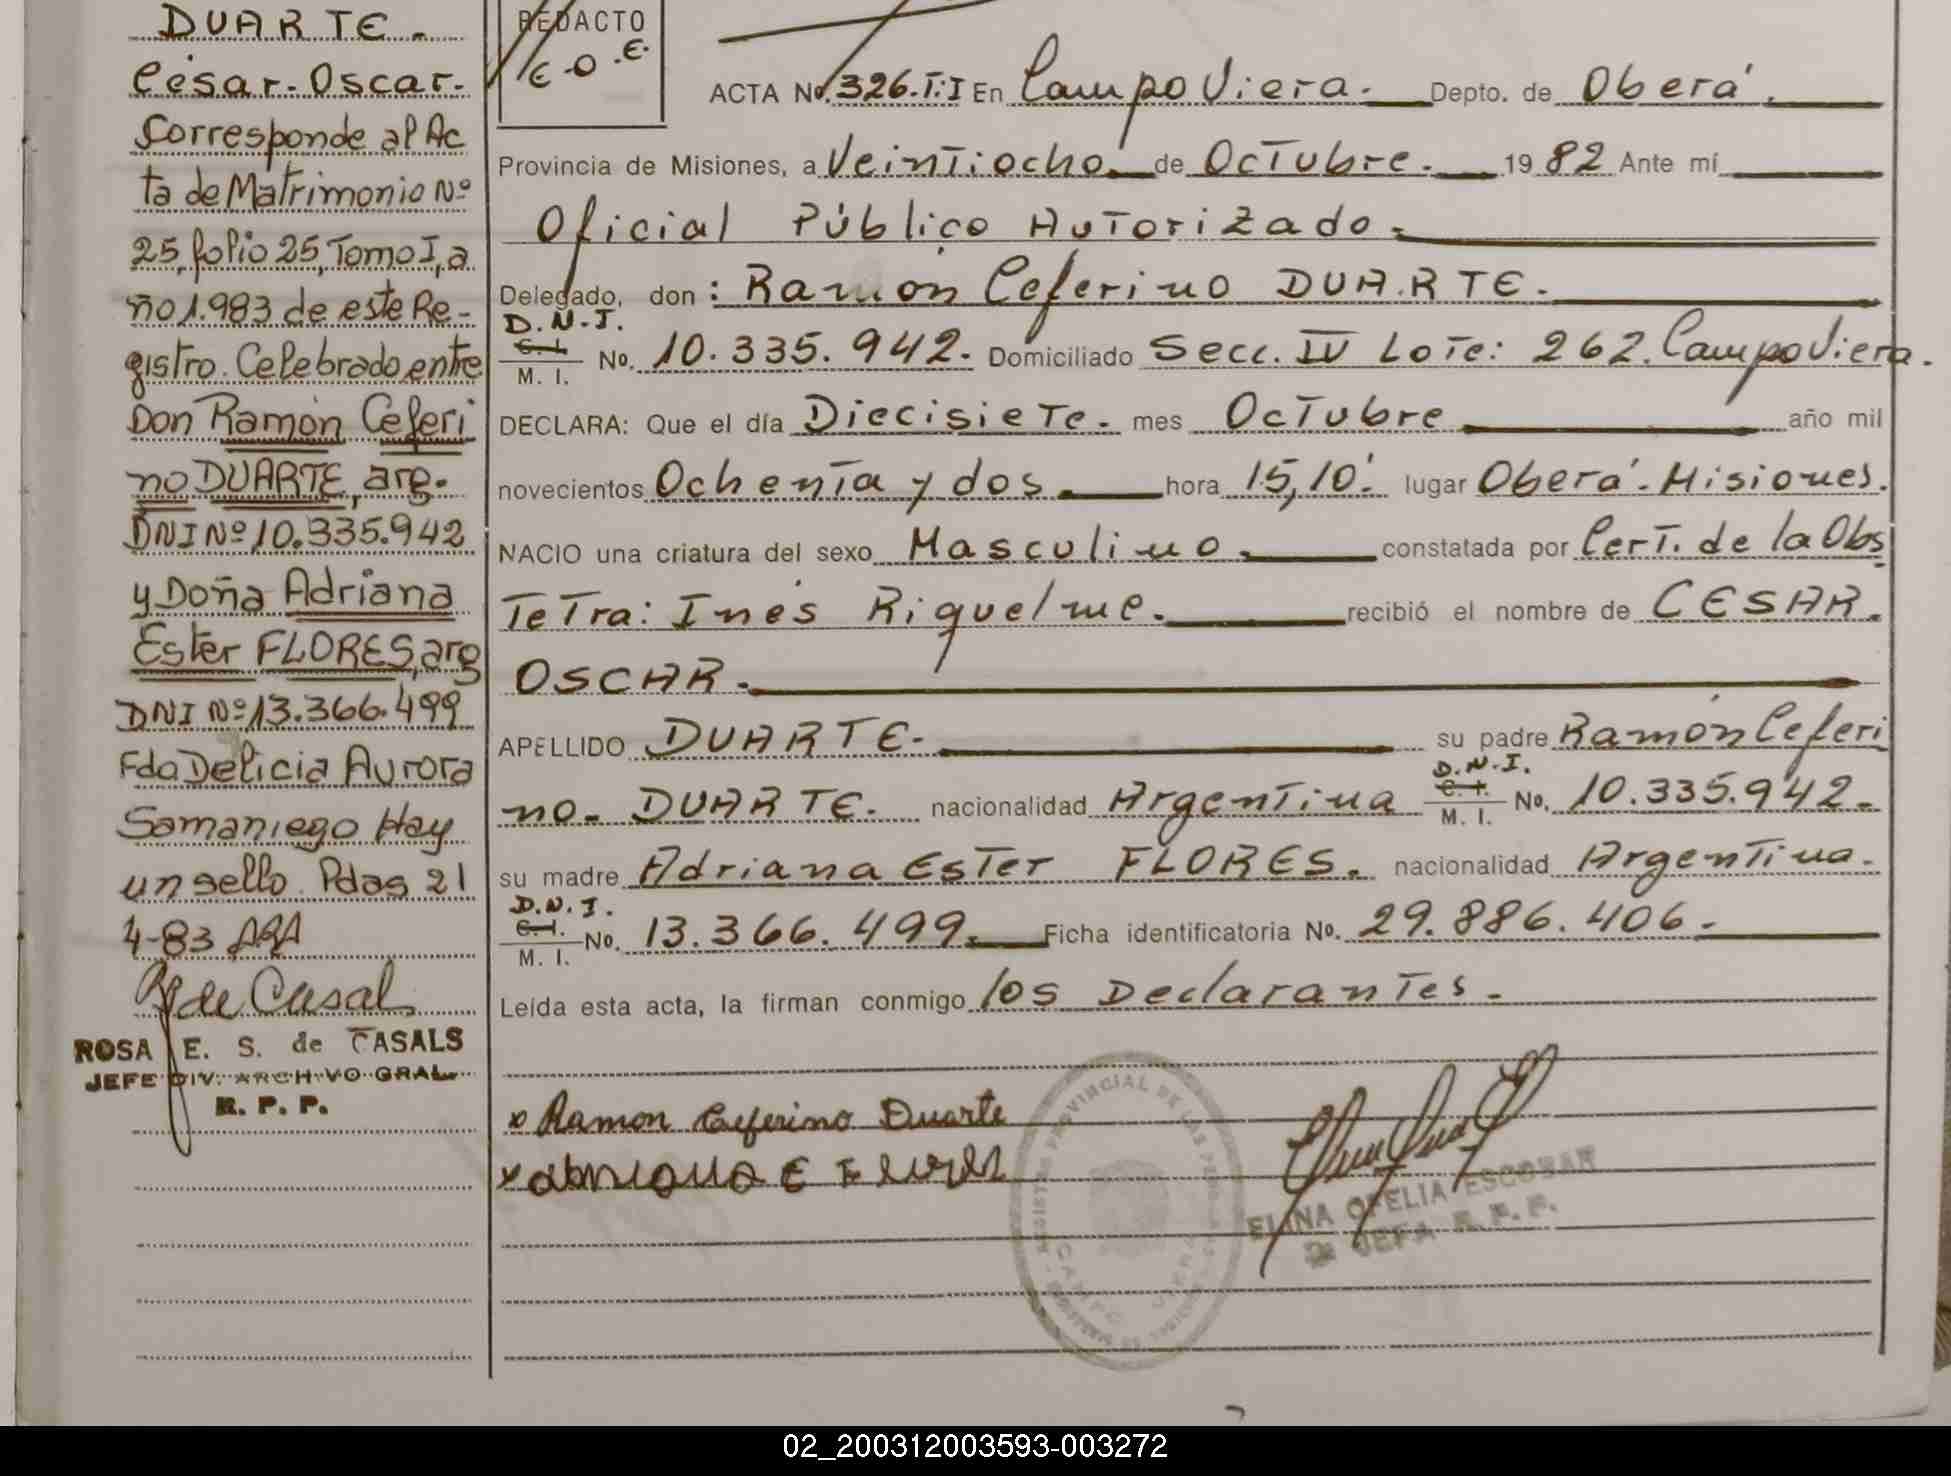 DUARTE.
César-Oscar-
Corresponde al Ac
ta de Matrimonio Nº
25, folio 25, Tomo I, a
ño 1.983 de este Re-
gistro. Celebrado entre
Don Ramón Ceferi
no DUARTE, arg.
DNI Nº 10.335.942
y Doña Adriana
Ester FLORES, arg
DNI Nº 13.366.499
Fdo Delicia Aurora
Samaniego Hay
un sello. Pdas 21
4-83
R de Casal
ROSA E. S. de CASALS
JEFE DIV. ARCHIVO GRAL.
R. P. P.
REDACTO
E-O.E.
ACTA No. 326.T:I En Campo Viera. Depto. de Oberá.
Provincia de Misiones, a Veintiocho. de Octubre. 1982 Ante mí
Oficial Público Autorizado.
Delegado, don: Ramón Ceferino DUARTE.
D.N.I.
C. I.
M. I. No. 10.335.942. Domiciliado Secc. IV Lote: 262. Campo Viera.
DECLARA: Que el día Diecisiete. mes Octubre año mil
novecientos Ochenta y dos. hora 15,10'. lugar Oberá. Misiones.
NACIO una criatura del sexo Masculino. constatada por Cert. de la Obs
Tetra: Inés Riquelme. recibió el nombre de CESAR.
OSCAR.
APELLIDO DUARTE. su padre Ramón Ceferi
no. DUARTE. nacionalidad Argentina D.N.I. C. I. M. I. No. 10.335.942.
su madre Adriana Ester FLORES. nacionalidad Argentina.
D.N.I.
C. I.
M. I. No. 13.366.499. Ficha identificatoria No. 29.886.406.
Leída esta acta, la firman conmigo los Declarantes.
x Ramon Ceferino Duarte
x adriana E Flores
REGISTRO PROVINCIAL DE LAS
CAMPO VIERA
ELINA OFELIA ESCOBAR
2a JEFA R.P.P.
02_200312003593-003272